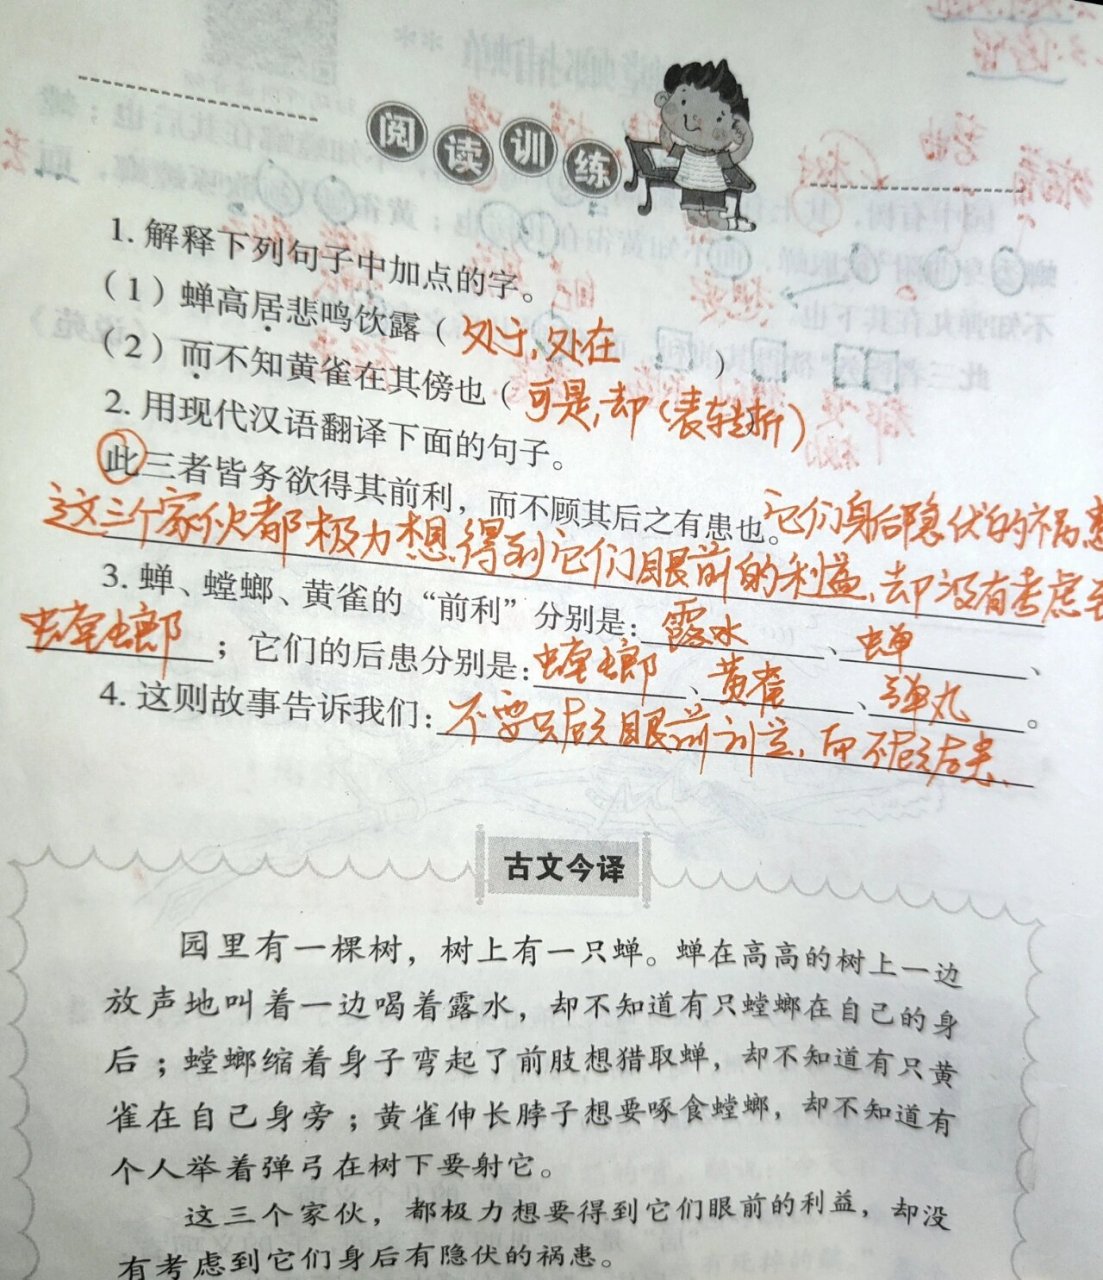 阅读训练
1. 解释下列句子中加点的字。
（1）蝉高居悲鸣饮露（处于,处在）
（2）而不知黄雀在其傍也（可是,却（表转折）
2. 用现代汉语翻译下面的句子。
此三者皆务欲得其前利，而不顾其后之有患也。它们身后隐伏的祸患
这三个家伙都极力想得到它们眼前的利益,却没有考虑到
3. 蝉、螳螂、黄雀的“前利”分别是：露水、蝉、
螳螂；它们的后患分别是：螳螂、黄雀、弹丸。
4. 这则故事告诉我们：不要只顾眼前利益,而不顾后患.
古文今译
园里有一棵树，树上有一只蝉。蝉在高高的树上一边
放声地叫着一边喝着露水，却不知道有只螳螂在自己的身
后；螳螂缩着身子弯起了前肢想猎取蝉，却不知道有只黄
雀在自己身旁；黄雀伸长脖子想要啄食螳螂，却不知道有
个人举着弹弓在树下要射它。
这三个家伙，都极力想要得到它们眼前的利益，却没
有考虑到它们身后有隐伏的祸患。